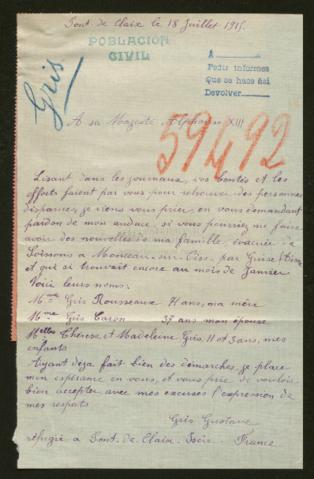 Pont de Claix le 18 Juillet 1915.
POBLACION
CIVIL
A
Pedir informes
Que se hace así
Devolver
Gris
A sa Majesté Alphonse XIII
59492
Lisant dans les journaux, vos bontés et les
efforts faient par vous pour retrouver des personnes
disparues, je viens vous prier, en vous demandant
pardon de mon audace, si vous pourriez me faire
avoir des nouvelles de ma famille, évacuée de
Soissons à Monceau-sur-Oise, par Guise (Aisne)
et qui si trouvait encore au mois de Janvier
Voici leurs noms:
Mme Gris Rousseaux 71 ans, ma mère
Mme Gris Caron 37 ans mon épouse
Melles Thérèse et Madeleine Gris, 11 et 3 ans, mes
enfants
Ayant déja fait bien des démarches, je place
mon espérance en vous, et vous prie de vouloir
bien accepter avec mes excuses l'expression de
mes respects
Gris Gustave
réfugié à Pont-de-Claix-Isère-France